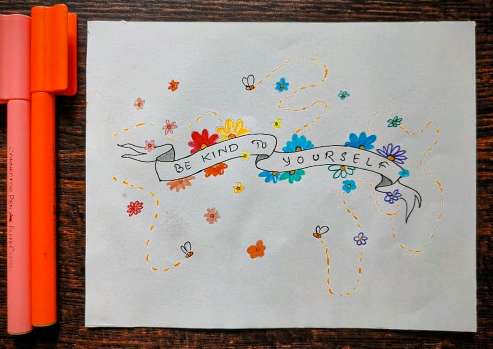 BE KIND TO YOURSELF